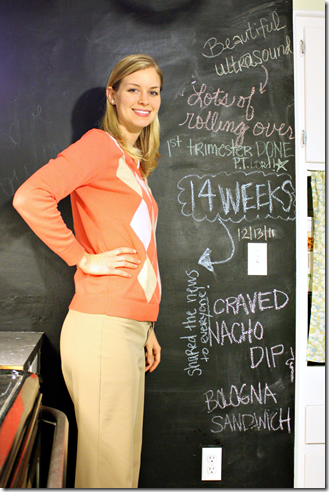 Beautiful
ultrasound
Lots of
rolling over
1st trimester DONE
14 WEEKS
shared the news
to everyone!
CRAVED
NACHO
DIP
BOLOGNA
SANDWICH